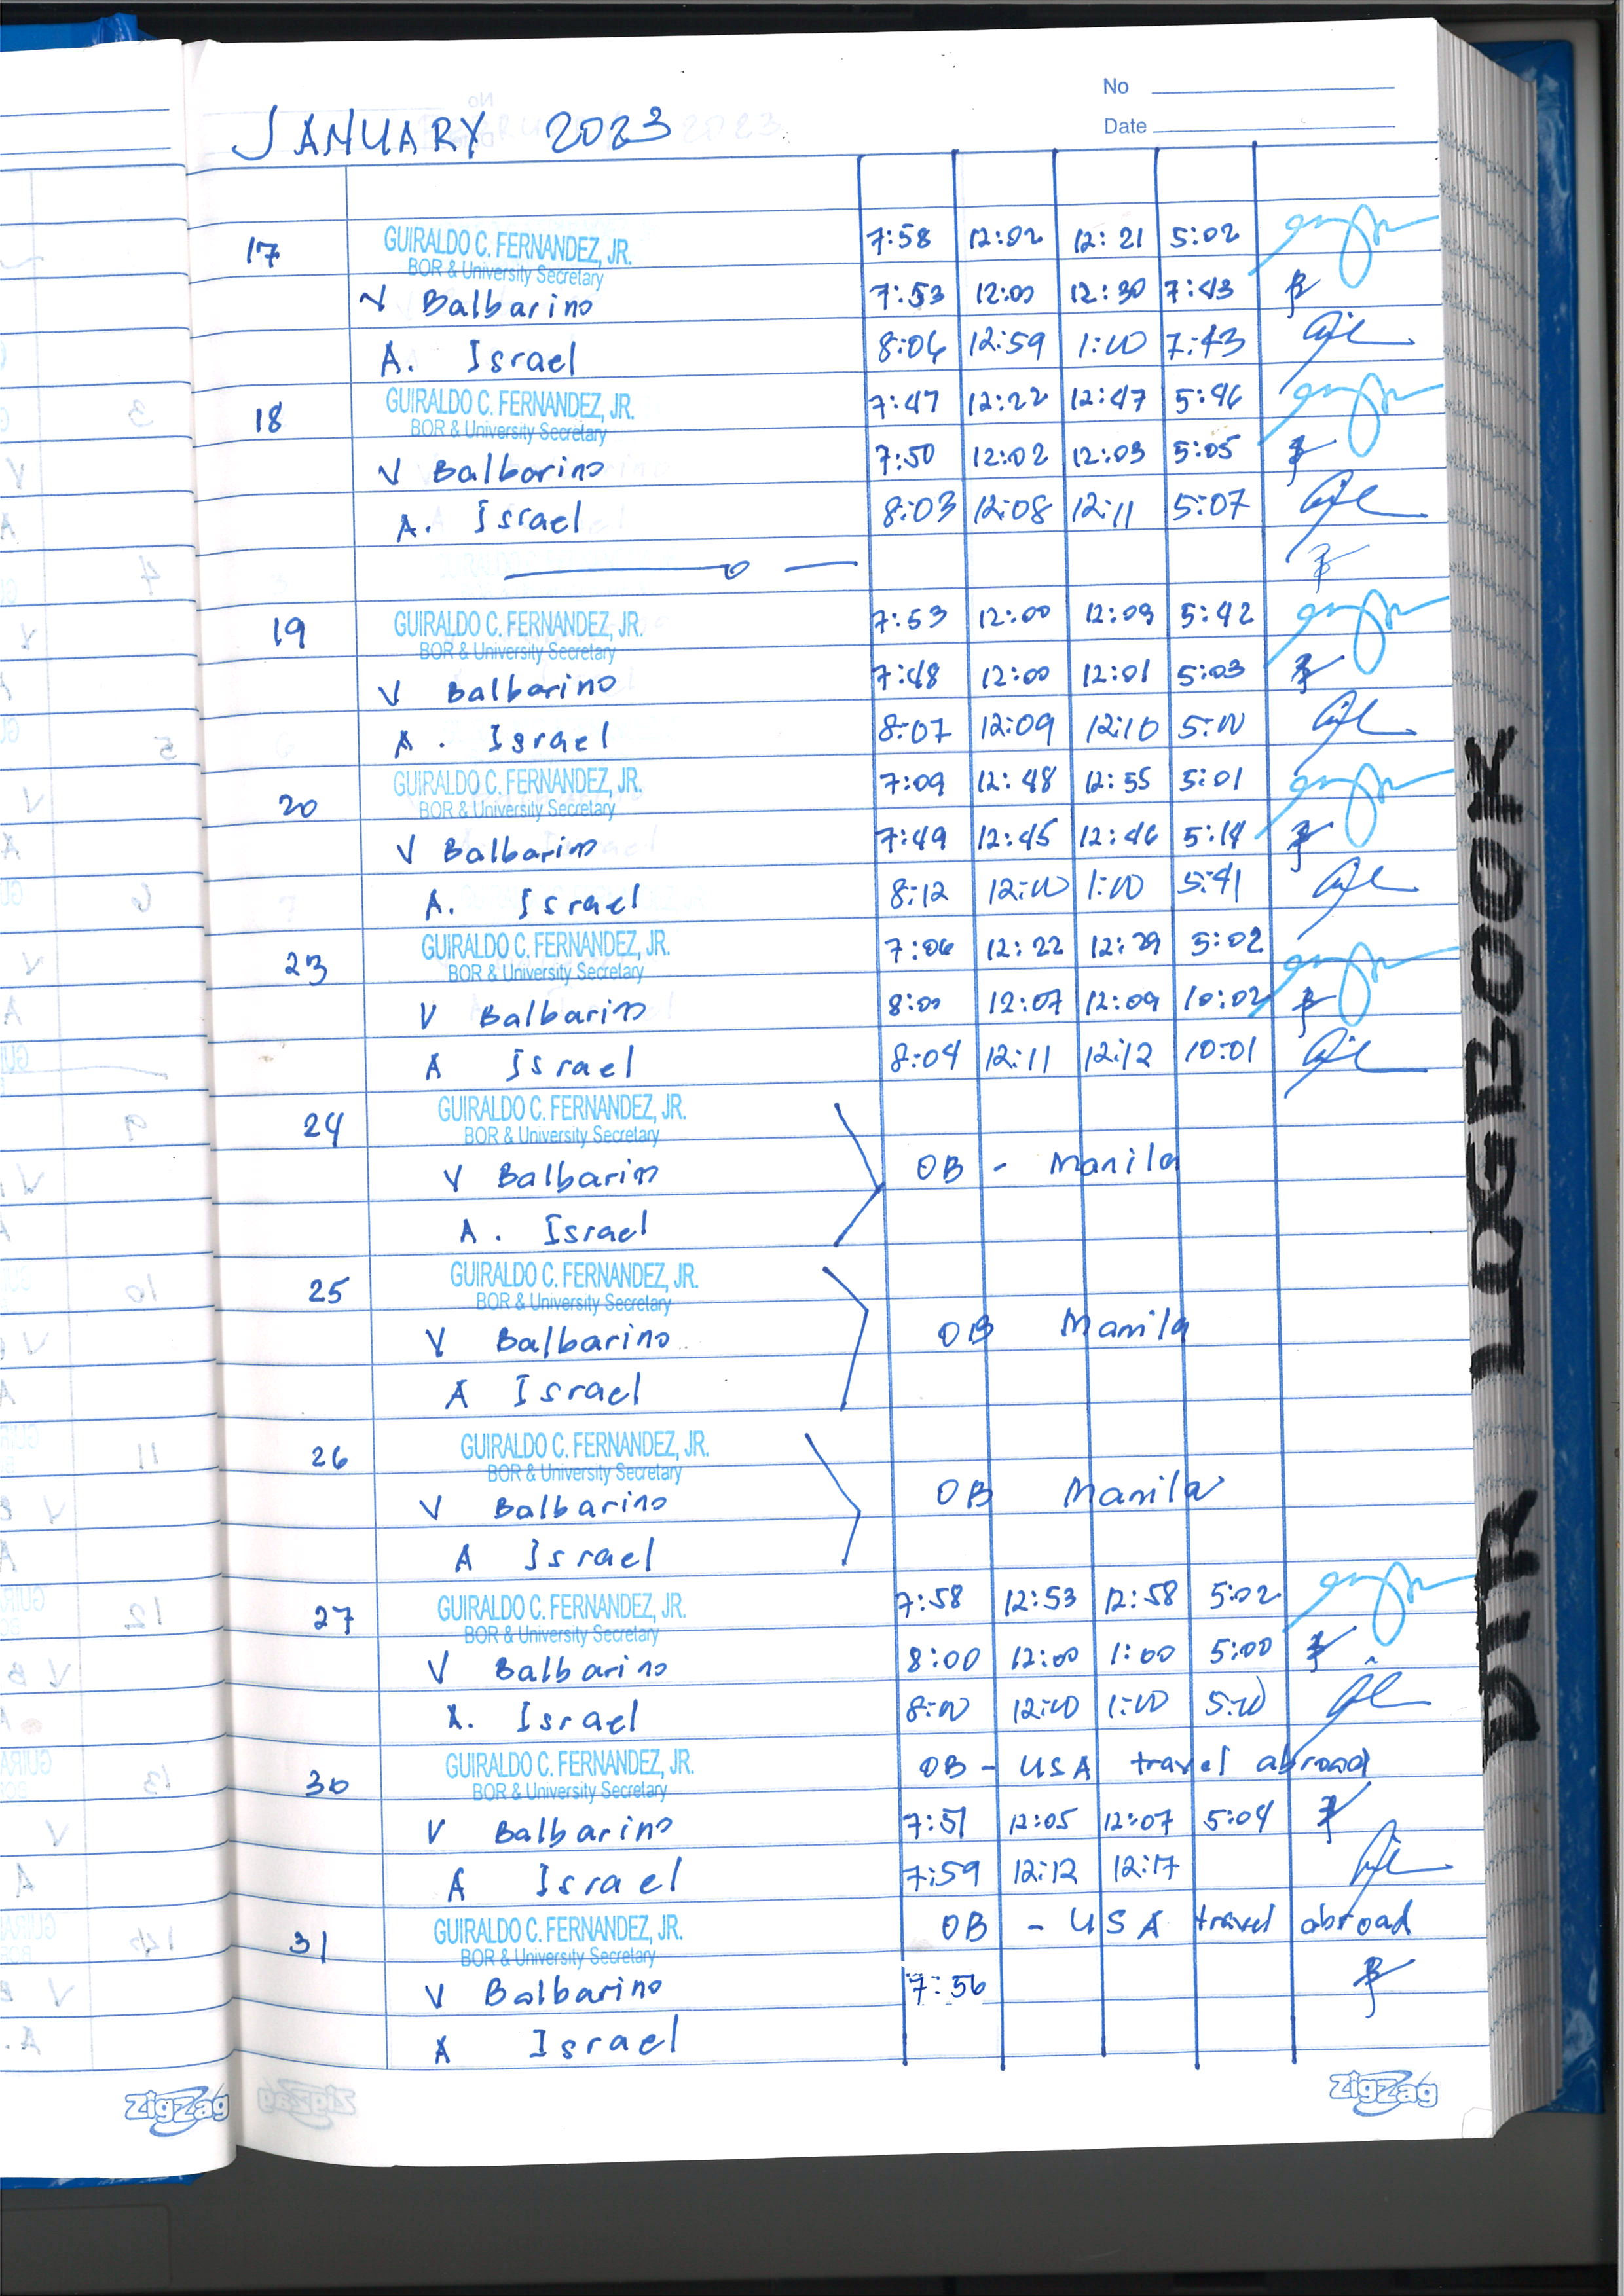 No
Date
JANUARY 2023
17 GUIRALDO C. FERNANDEZ, JR. 7:58 12:02 12:21 5:02
BOR & University Secretary
V Balbarino 7:53 12:00 12:30 7:43
A. Israel 8:06 12:59 1:00 7:43
18 GUIRALDO C. FERNANDEZ, JR. 7:47 12:22 12:47 5:46
BOR & University Secretary
V Balbarino 7:50 12:02 12:03 5:05
A. Israel 8:03 12:08 12:11 5:07
19 GUIRALDO C. FERNANDEZ, JR. 7:53 12:00 12:09 5:42
BOR & University Secretary
V Balbarino 7:48 12:00 12:01 5:03
A. Israel 8:07 12:09 12:10 5:00
20 GUIRALDO C. FERNANDEZ, JR. 7:09 12:48 12:55 5:01
BOR & University Secretary
V Balbarino 7:49 12:45 12:46 5:14
A. Israel 8:12 12:00 1:00 5:41
23 GUIRALDO C. FERNANDEZ, JR. 7:06 12:22 12:29 5:02
BOR & University Secretary
V Balbarino 8:00 12:07 12:09 10:02
A Israel 8:04 12:11 12:12 10:01
24 GUIRALDO C. FERNANDEZ, JR.
BOR & University Secretary
V Balbarino OB - Manila
A. Israel
25 GUIRALDO C. FERNANDEZ, JR.
BOR & University Secretary
V Balbarino OB Manila
A Israel
26 GUIRALDO C. FERNANDEZ, JR.
BOR & University Secretary
V Balbarino OB Manila
A Israel
27 GUIRALDO C. FERNANDEZ, JR. 7:58 12:53 12:58 5:02
BOR & University Secretary
V Balbarino 8:00 12:00 1:00 5:00
A. Israel 8:00 12:00 1:00 5:00
30 GUIRALDO C. FERNANDEZ, JR. OB - USA travel abroad
BOR & University Secretary
V Balbarino 7:51 12:05 12:07 5:04
A Israel 7:59 12:12 12:17
31 GUIRALDO C. FERNANDEZ, JR. OB - USA travel abroad
BOR & University Secretary
V Balbarino 7:56
A Israel
ZigZag
ZigZag
DTR LOGBOOK